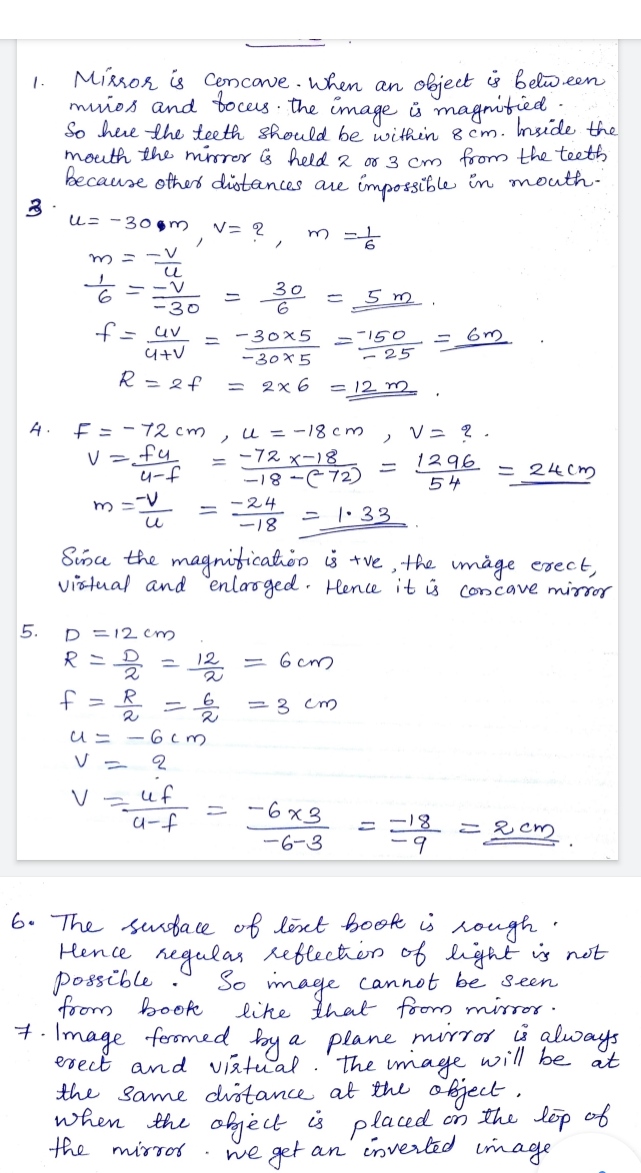 1. Mirror is Concave. When an object is between
mirror and focus. the image is magnified.
So here the teeth should be within 8 cm. Inside the
mouth the mirror is held 2 or 3 cm from the teeth
because other distances are impossible in mouth.
3. u = -30 m, v = ?, m = 1/6
m = -v/u
1/6 = -v/-30 = 30/6 = 5 m.
f = uv/u+v = -30×5/-30×5 = -150/-25 = 6m.
R = 2f = 2×6 = 12 m.
4. F = -72 cm, u = -18 cm, v = ?.
v = fu/u-f = -72 × -18/-18-(-72) = 1296/54 = 24cm
m = -v/u = -24/-18 = 1.33
Since the magnification is +ve, the image erect,
virtual and enlarged. Hence it is concave mirror
5. D = 12 cm
R = D/2 = 12/2 = 6 cm
f = R/2 = 6/2 = 3 cm
u = -6 cm
v = ?
v = uf/u-f = -6×3/-6-3 = -18/-9 = 2 cm.
6. The surface of text book is rough.
Hence regular reflection of light is not
possible. So image cannot be seen
from book like that from mirror.
7. Image formed by a plane mirror is always
erect and virtual. The image will be at
the same distance at the object.
When the object is placed on the top of
the mirror. we get an inverted image